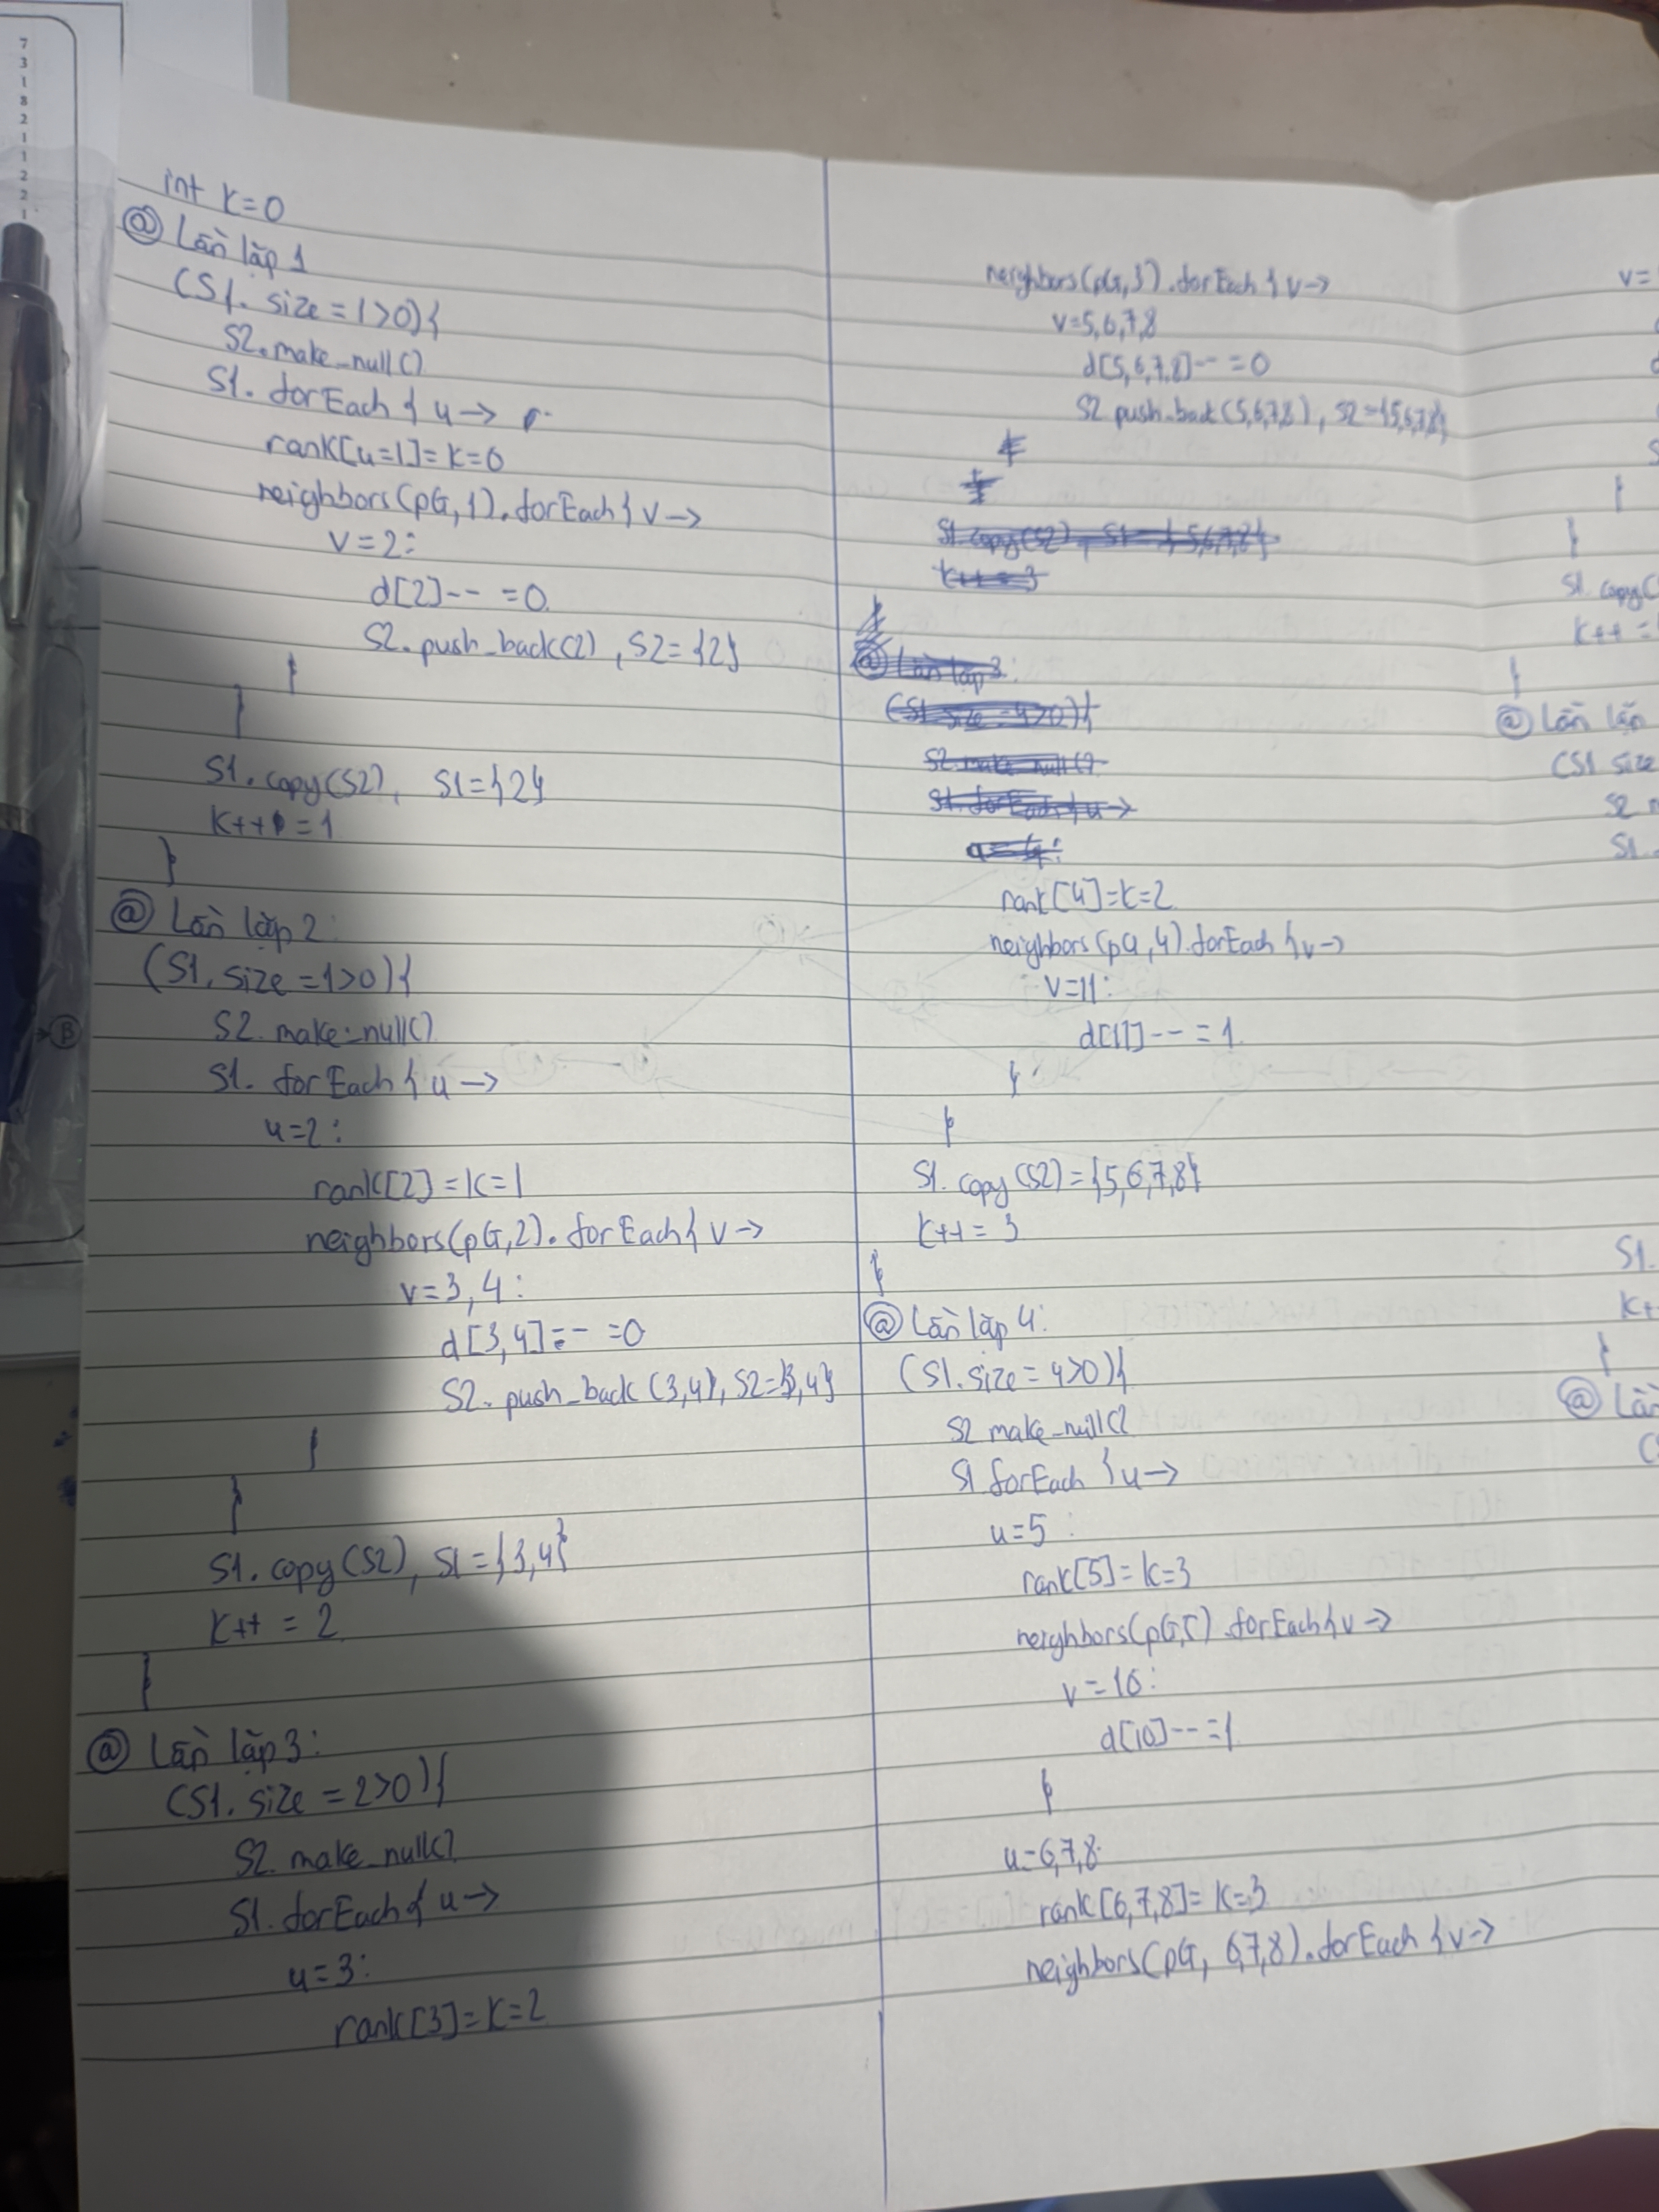 7
3
1
8
2
1
1
2
2
1
int k=0
@ Lần lặp 1
(S1. size = 1>0){
S2.make_null()
S1. forEach { u →
rank[u=1]=k=0
neighbors(pG,1).forEach{ v →
v=2:
d[2]-- =0
S2.push_back(2), S2={2}
}
}
S1.copy(S2), S1={2}
k++ =1
}
@ Lần lặp 2:
(S1.size =1>0){
S2.make_null()
S1. forEach { u →
u=2:
rank[2]=k=1
neighbors(pG,2).forEach{ v →
v=3,4:
d[3,4]-- =0
S2.push_back(3,4), S2={3,4}
}
}
S1.copy(S2), S1={3,4}
k++ = 2
}
@ Lần lặp 3:
(S1.size = 2>0){
S2.make_null()
S1.forEach{ u →
u=3:
rank[3]=k=2
neighbors(pG,3).forEach{ v →
v=5,6,7,8
d[5,6,7,8]-- =0
S2.push_back(5,6,7,8), S2={5,6,7,8}
S1.copy(S2), S1={5,6,7,8}
k++ = 3
@ Lần lặp 3:
(S1 size =4>0){
S2.make_null()
S1.forEach{ u →
u=4:
rank[4]=k=2
neighbors(pG,4).forEach{ v →
v=11:
d[11]-- = 1
}
}
S1.copy(S2)={5,6,7,8}
k++ = 3
}
@ Lần lặp 4:
(S1.size = 4>0){
S2 make_null()
S1 forEach { u →
u=5:
rank[5]=k=3
neighbors(pG,5).forEach{ v →
v=10:
d[10]-- =1
}
u=6,7,8
rank[6,7,8]=k=3
neighbors(pG, 6,7,8).forEach { v →
v=
}
}
S1 copy(
k++ =
}
@ Lần lặp
(S1 size
S2
S1.
S1.
k+
}
@ Lần
(
B